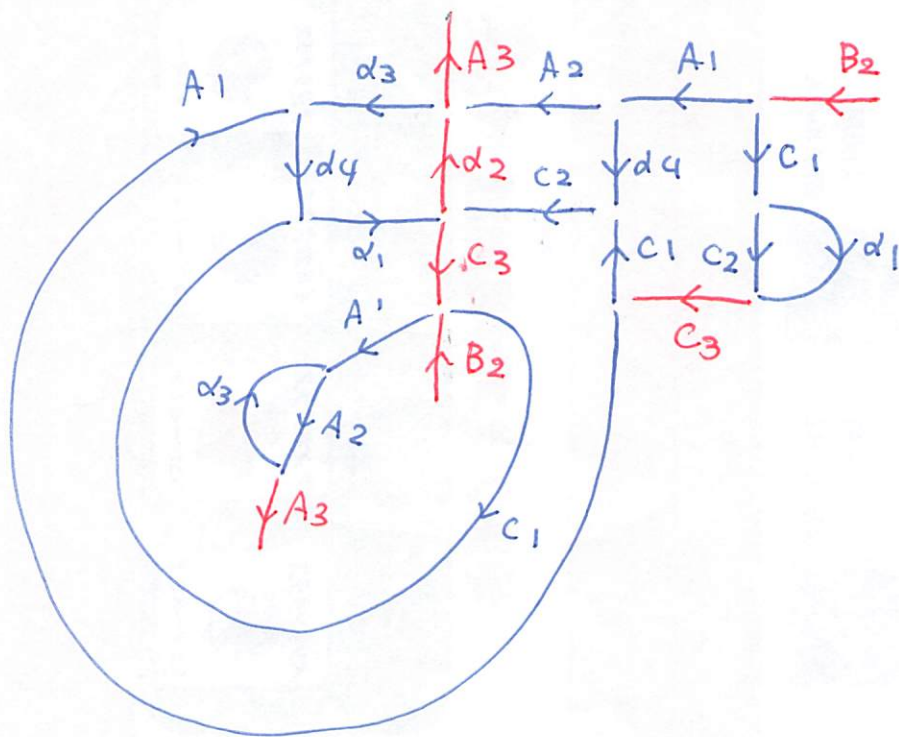 A1 α3 A3 A2 A1 B2
α4 α2 C2 α4 C1
α1 C3 C1 C2 α1
A1 B2 C3
α3 A2
A3 C1